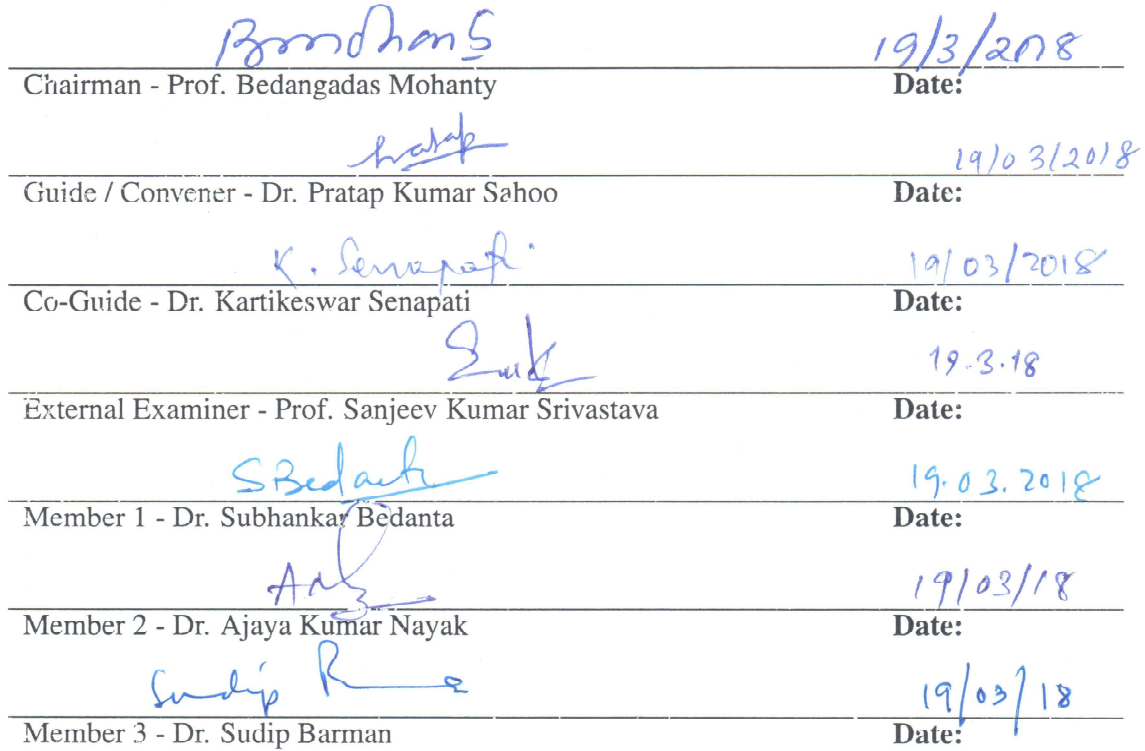 19/3/2018
Chairman - Prof. Bedangadas Mohanty Date:
19/03/2018
Guide / Convener - Dr. Pratap Kumar Sahoo Date:
K. Senapati 19/03/2018
Co-Guide - Dr. Kartikeswar Senapati Date:
19.3.18
External Examiner - Prof. Sanjeev Kumar Srivastava Date:
SBedanta 19.03.2018
Member 1 - Dr. Subhankar Bedanta Date:
19/03/18
Member 2 - Dr. Ajaya Kumar Nayak Date:
Sudip 19/03/18
Member 3 - Dr. Sudip Barman Date: